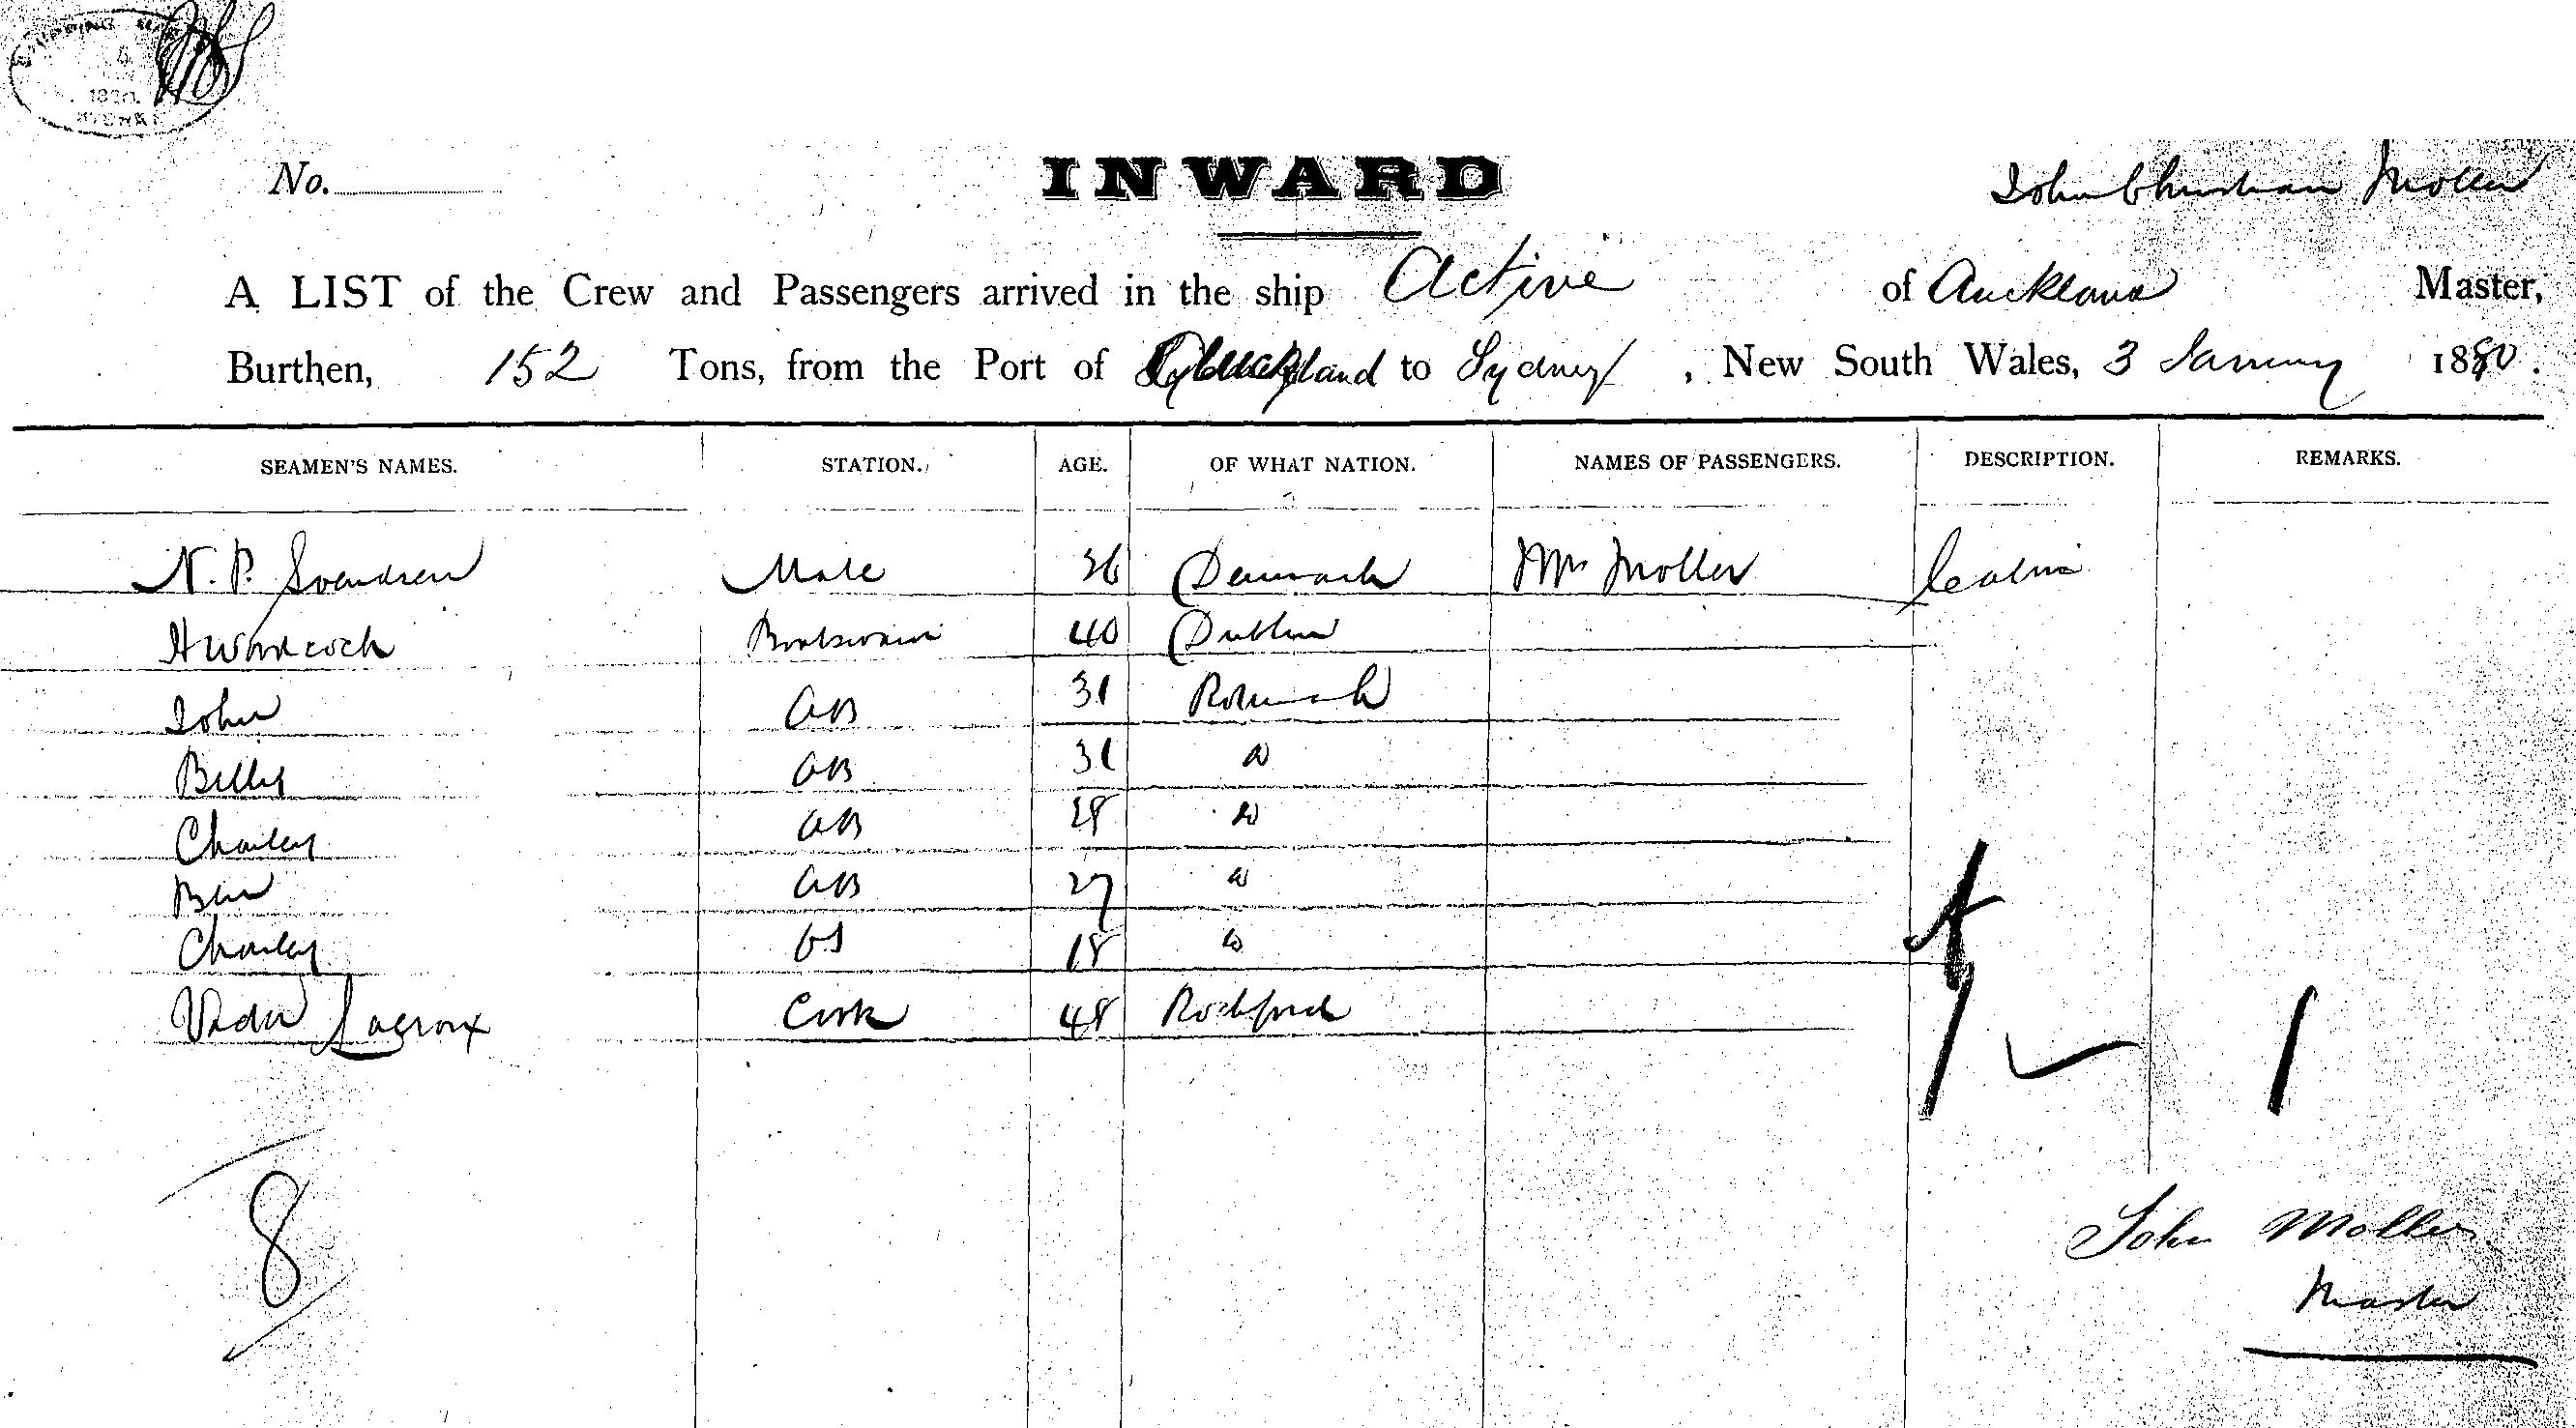 1880
No.
INWARD
John Christian Moller
A LIST of the Crew and Passengers arrived in the ship Active of Auckland Master,
Burthen, 152 Tons, from the Port of Auckland to Sydney, New South Wales, 3 January 1880.
SEAMEN'S NAMES. STATION. AGE. OF WHAT NATION. NAMES OF PASSENGERS. DESCRIPTION. REMARKS.
N. P. Svendsen Mate 36 Denmark Mrs Moller Cabin
H Woodcock Boatswain 40 Dublin
John AB 31 Rotumah
Billy AB 31 do
Charley AB 28 do
Ben AB 27 do
Charley OS 18 do
Victor Lacroix Cook 48 Rochford
8
1
John Moller
Master